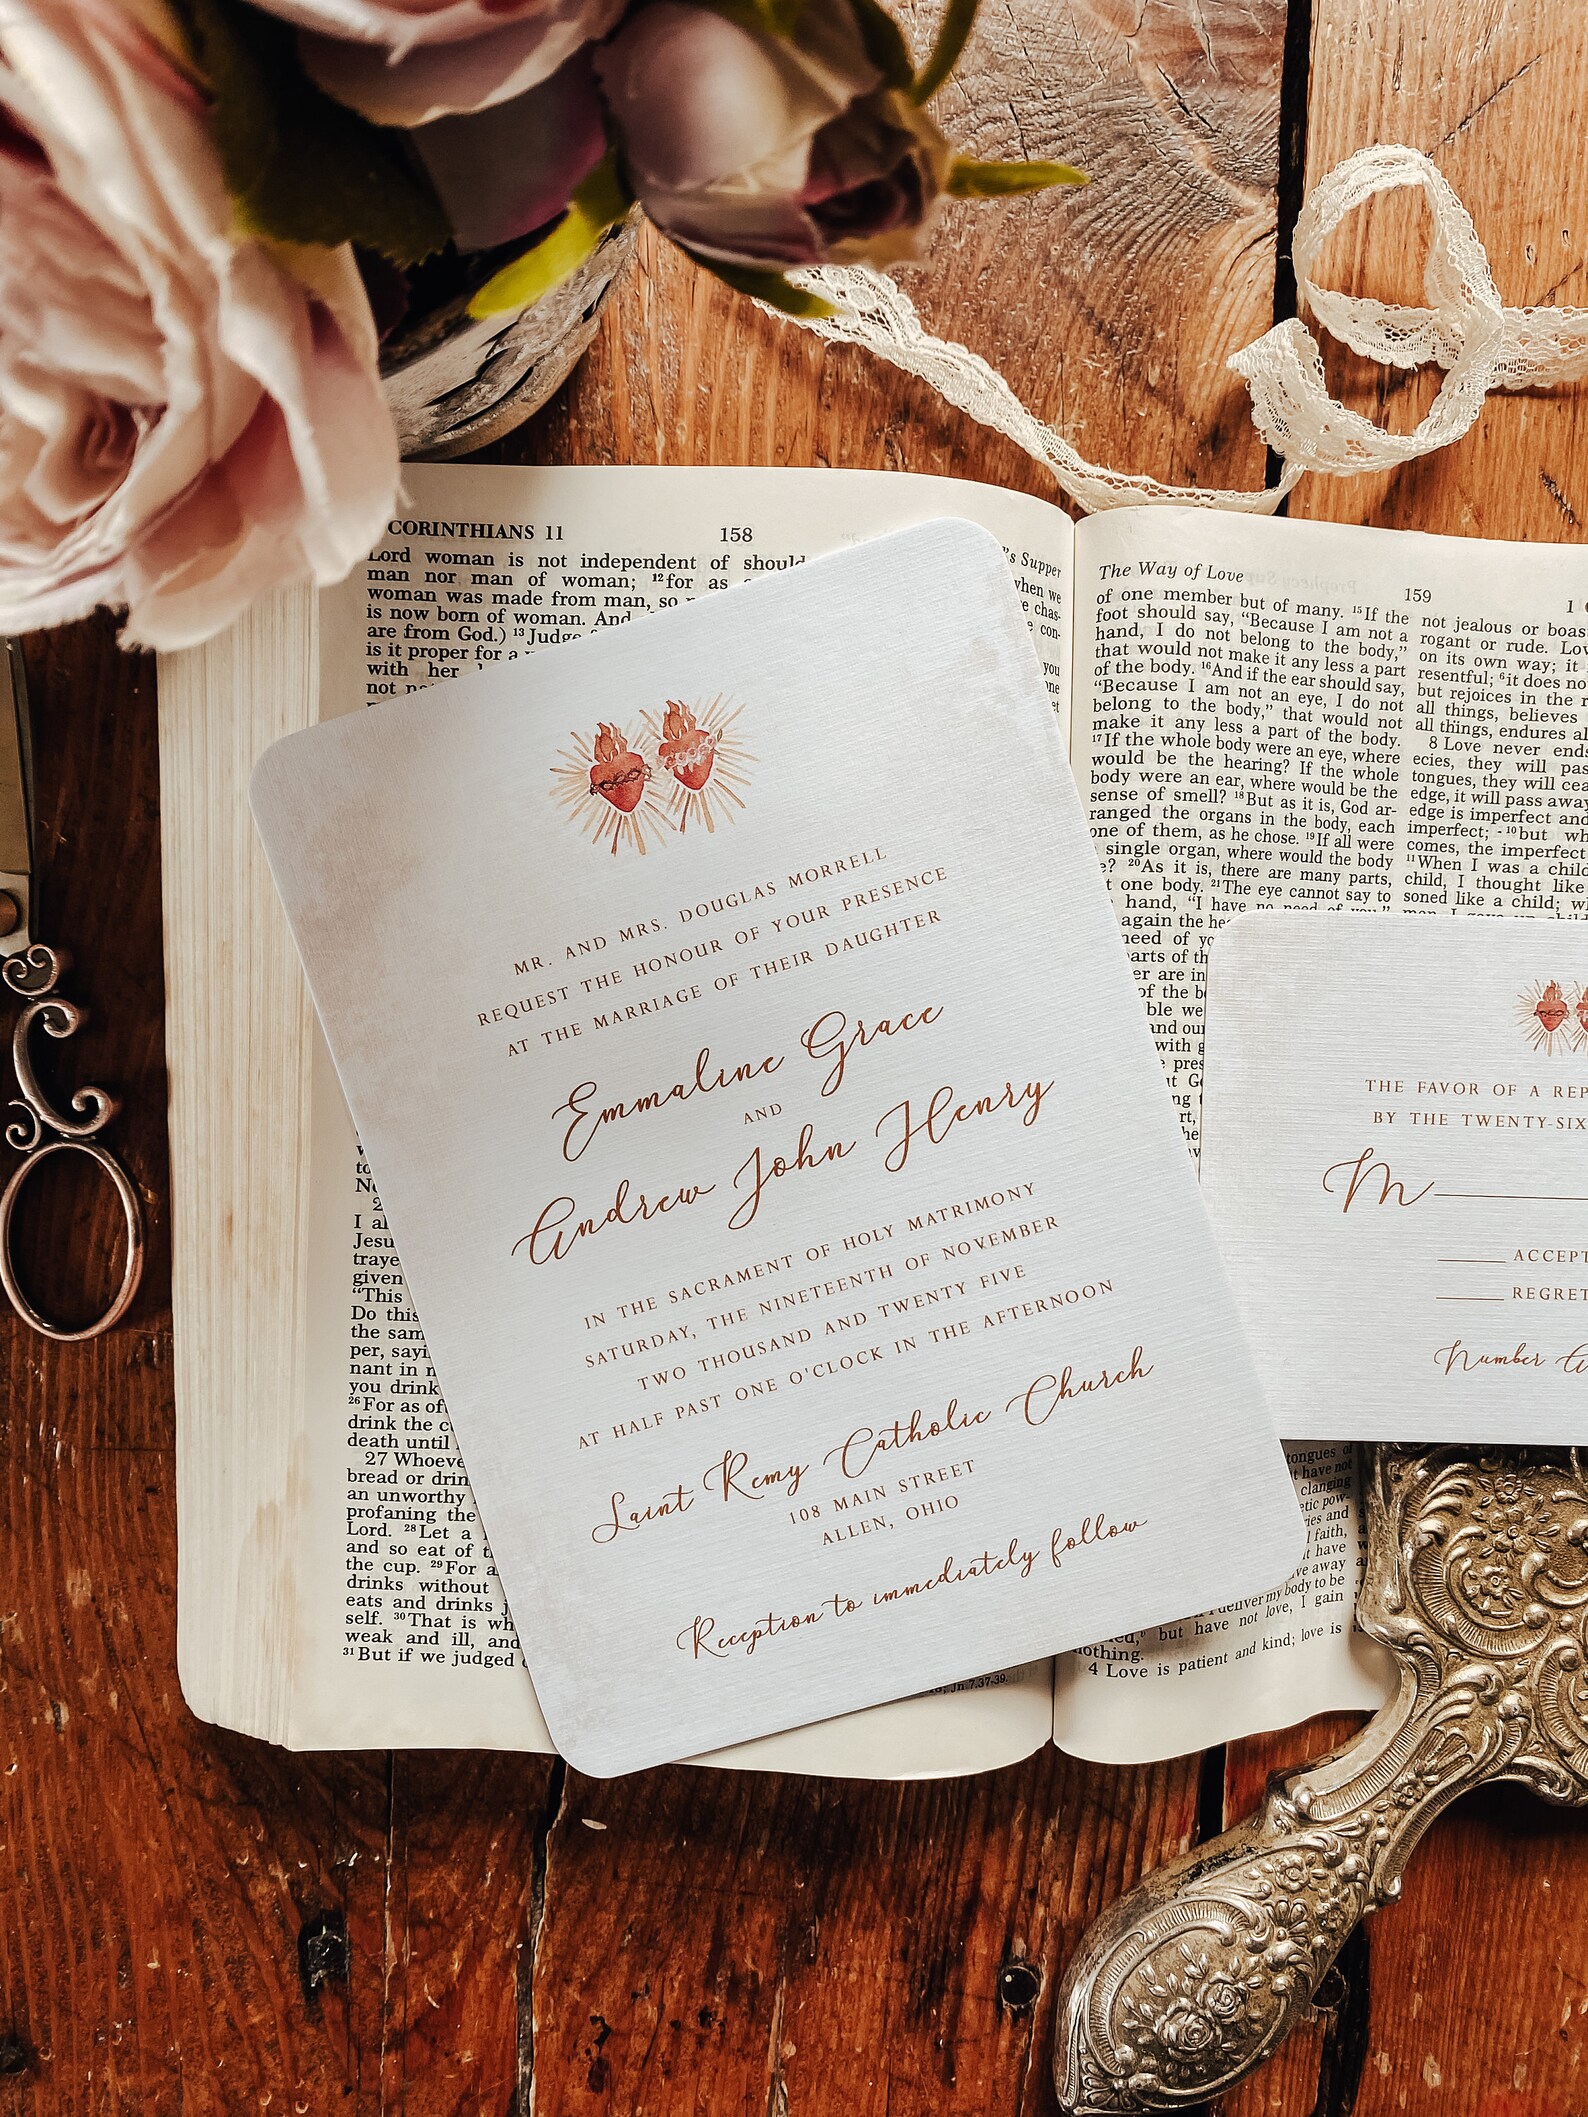 CORINTHIANS 11
158
Lord woman is not independent of
man nor man of woman; 12for as
woman was made from man, so
is now born of woman. And
are from God.) 13Judge
is it proper for a
with her
not
's Supper
when we
you
to
I
Jesu
traye
given
"This
Do this
the sam
per, sayi
nant in
you drink
26For as of
drink the
death until
27 Whoeve
bread or drin
an unworthy
profaning the
Lord. 28Let a
and so eat of
the cup. 29For
drinks without
eats and drinks
self. 30That is wh
weak and ill, and
31But if we judged
Jn 7.37-39.
MR. AND MRS. DOUGLAS MORRELL
REQUEST THE HONOUR OF YOUR PRESENCE
AT THE MARRIAGE OF THEIR DAUGHTER
Emmaline Grace
AND
Andrew John Henry
IN THE SACRAMENT OF HOLY MATRIMONY
SATURDAY, THE NINETEENTH OF NOVEMBER
TWO THOUSAND AND TWENTY FIVE
AT HALF PAST ONE O'CLOCK IN THE AFTERNOON
Saint Remy Catholic Church
108 MAIN STREET
ALLEN, OHIO
Reception to immediately follow
The Way of Love
159
1
of one member but of many. 15If the
foot should say, "Because I am not a
hand, I do not belong to the body,"
that would not make it any less a part
of the body. 16And if the ear should say,
"Because I am not an eye, I do not
belong to the body," that would not
make it any less a part of the body.
17If the whole body were an eye, where
would be the hearing? If the whole
body were an ear, where would be the
sense of smell? 18But as it is, God ar-
ranged the organs in the body, each
one of them, as he chose. 19If all were
single organ, where would the body
20As it is, there are many parts,
one body. 21The eye cannot say to
hand, "I have no need of you,"
again the
need of
parts of
are in
of the
and our
with
tongues of
have not
clanging
faith,
have
away
deliver my body to be
but have not love, I gain
nothing.
4 Love is patient and kind; love is
not jealous or boas
rogant or rude. Lov
on its own way; it
resentful; 6it does no
but rejoices in the
all things, believes
all things, endures al
8 Love never ends
ecies, they will pas
tongues, they will cea
edge, it will pass away
edge is imperfect and
imperfect; 10but wh
comes, the imperfect
11When I was a child
child, I thought like
soned like a child; w
THE FAVOR OF A REP
BY THE TWENTY-SIX
M
ACCEPT
REGRET
Number